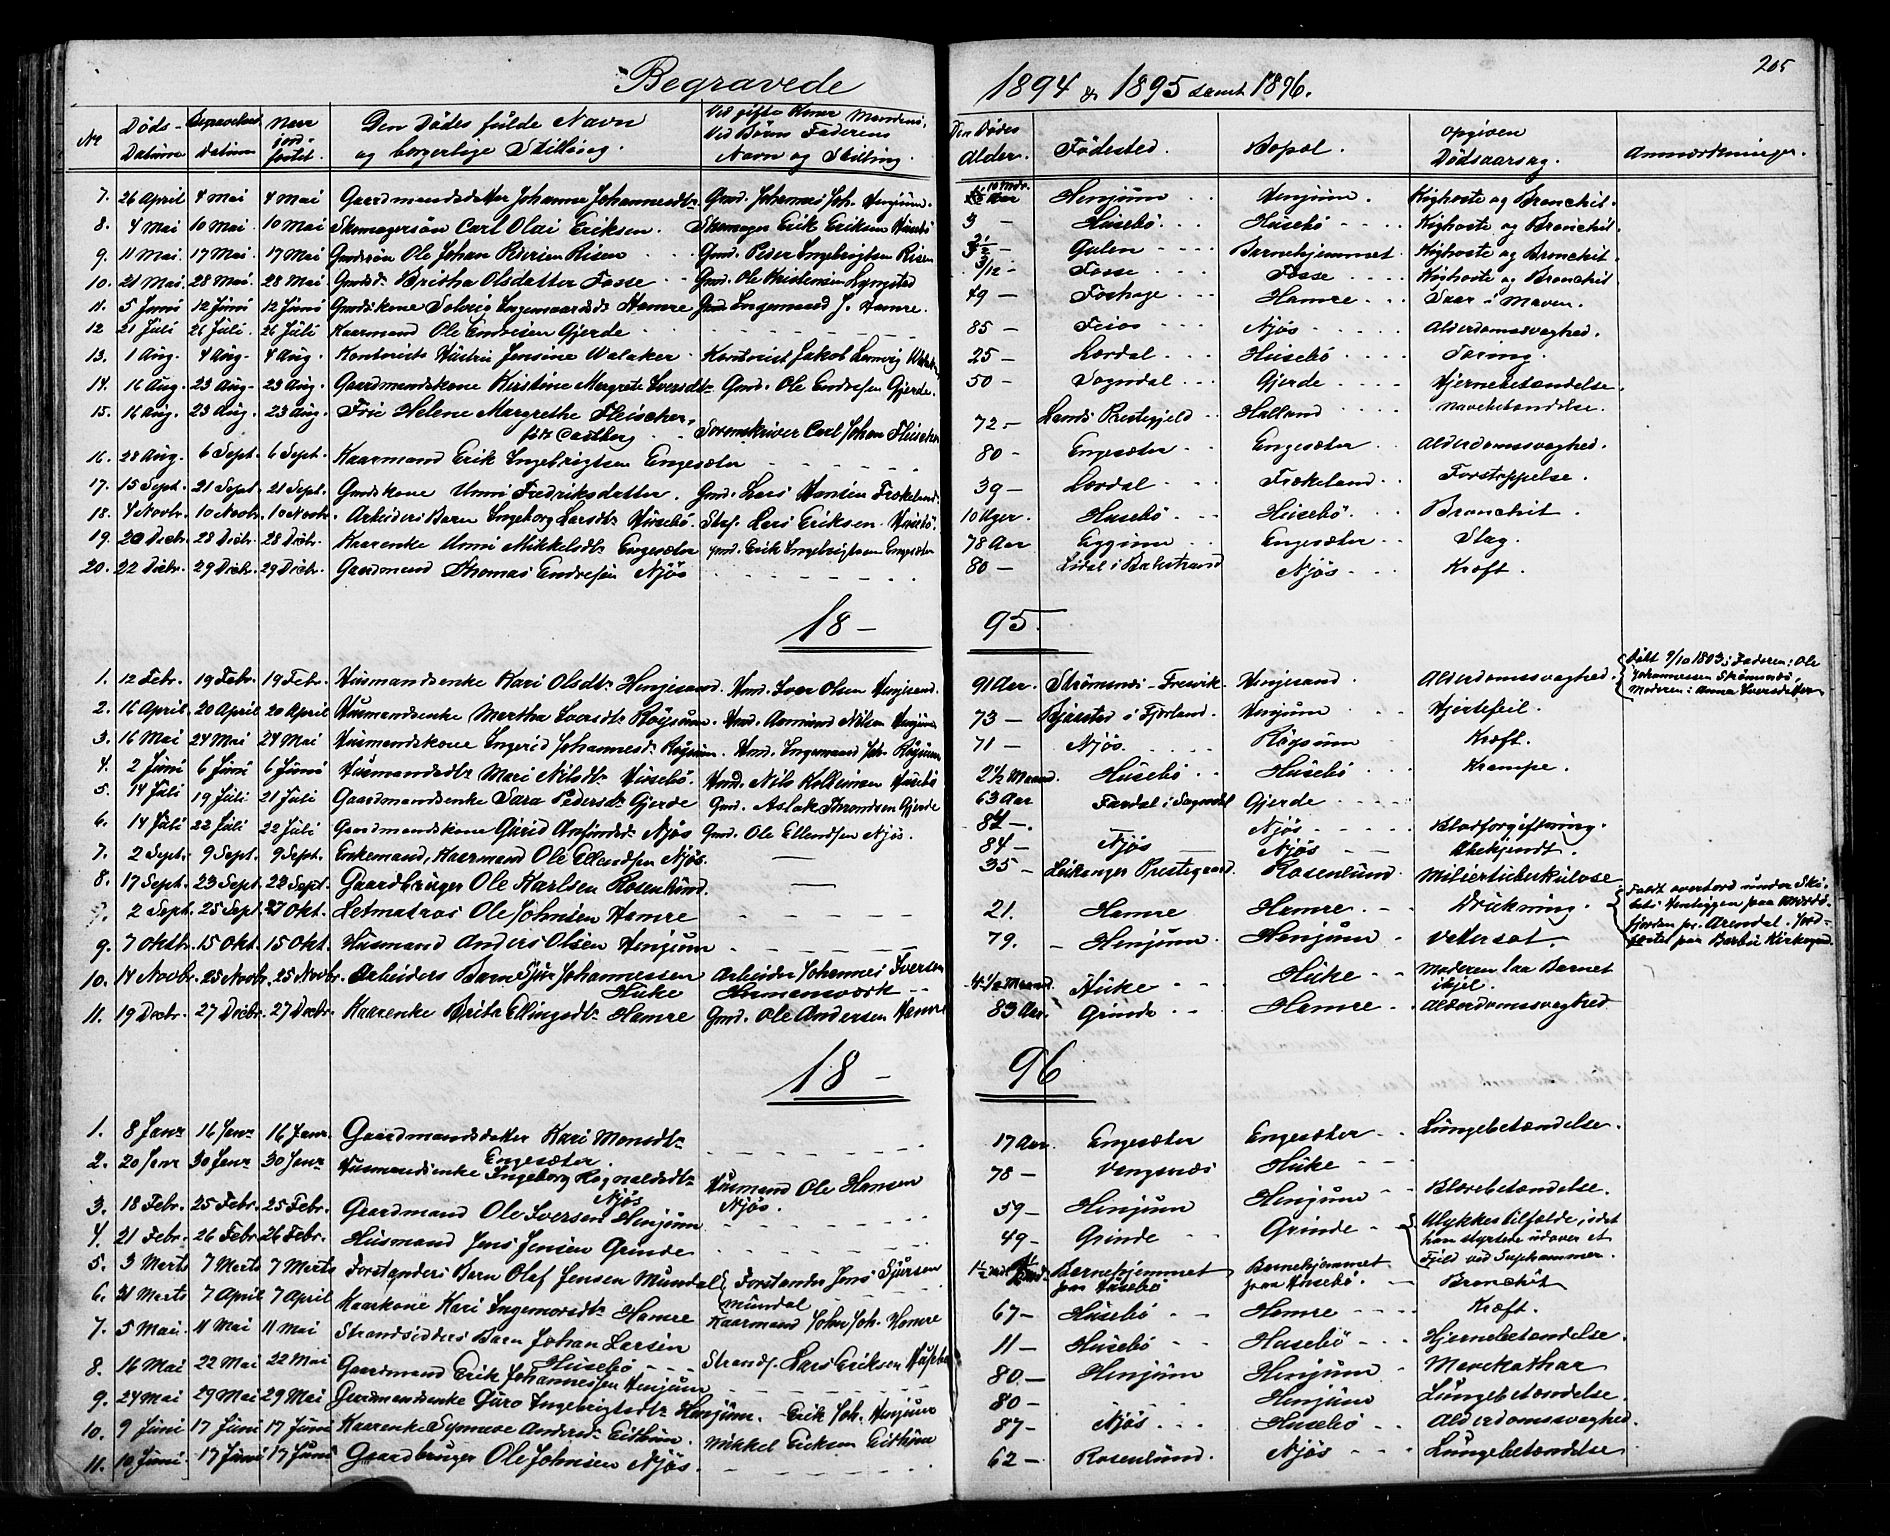 205
Begravede 1894 & 1895 samt 1896.
No Döds-Datum Begravelses Datum Naar jordfæstet. Den Dödes fulde Navn og borgerlige Stilling. Ved gifte Koner Mandens, Ved Börn Faderens Navn og Stilling. Den Dödes Alder. Födested. Bopæl. Opgiven Dödsaarsag. Anmærkninger.
7. 26 April 4 Mai 4 Mai Gaardmandsdatter Johanne Johannesdtr Gmd. Johannes Joh. Henjum. 10 Mdr. Henjum Henjum. Kighoste og Bronchit.
8. 4 Mai 10 Mai 10 Mai Skomagersön Carl Olai Eriksen. Skomager Erik Eriksen Husebö 3 — Husebö Husebö Kighoste og Bronchit.
9. 11 Mai 17 Mai 17 Mai Gmdssön Ole Johan Pedersen Risen Gmd. Peder Ingebrigtsen Risen 2½ — Gulen Barnehjemmet Kighoste og Bronchit.
10. 21 Mai 28 Mai 28 Mai Gmdsdr. Britha Olsdatter Fosse Gmd. Ole Kristensen 3/12 — Fosse Fosse Kighoste og Bronchit.
11. 5 Juni 12 Juni 12 Juni Gmdskone Solveig Ingemannsdtr Hamre Gmd Ingemand J. Hamre. 49 — Foshage Hamre Saar i Maven.
12 21 Juli 26 Juli 26 Juli Kaarmand Ole Endresen Gjerde 85 — Feios Njös Alderdomssvaghed.
13. 1 Aug. 4 Aug. 4 Aug. Kontorists Hustru Jensine Walaker Kontorist Jakob 25 — Lærdal Husebö Tæring.
14. 16 Aug. 23 Aug. 23 Aug. Gaardmandskone Kirstine Margrete Iversdtr Gmd. Ole Endresen Gjerde. 50 — Sogndal Gjerde Hjernebetændelse.
15. 16 Aug. 23 Aug. 23 Aug. Frue Helene Margrethe Fleischer,
föd Castberg Sorenskriver Carl Johan Fleischer 72 — Lands Prestegjeld Halland Mavebetændelse.
16. 28 Aug. 6 Sept. 6 Sept. Kaarmand Erik Ingebrigtsen Engesæter 80 - Engesæter Engesæter Alderdomssvaghed.
17. 15 Sept. 21 Sept. 21 Sept. Gmdskone Unni Fredriksdatter. Gmd. Lars Hansen Frøkeland 39 — Lærdal Frøkeland Forstoppelse.
18. 4 Novbr. 10 Novbr. 10 Novbr. Arbeiders Barn Ingeborg Larsdtr Husebö. Lars Eriksen Husebö 10 Uger. Husebö Husebö Bronchit.
19. 20 Decbr. 28 Decbr. 28 Decbr. Kaarenke Unni Mikkelsdtr Engesæter Gmd. Erik Ingebrigtsen Engesæter 78 Aar Eggum Engesæter Slag.
20. 22 Decbr. 29 Decbr. 29 Decbr. Gaardmand Thomas Endresen Njös 80 — i Balestrand Njös Kræft.
18 — 95.
1. 12 Febr. 19 Febr. 19 Febr. Husmandsenke Kari Olsdtr Henjesand. Hmd. Iver Olsen Henjesand. 91 Aar. Strömsnes - Fresvik Henjesand. Alderdomssvaghed. Döbt 9/10 1803; Faderen: Ole
Johannessen Strömsnes,
Moderen: Anna Iversdatter
2. 16 April 20 April 20 April Husmandsenke Martha Iversdtr Röysum. Hmd. Anmund Nilsen Henjum 73 — Bjåstad i Fjærland. Henjum Hjertefeil.
3. 16 Mai 24 Mai 24 Mai Husmandskone Ingerid Johannesdtr Röysum. Hmd. Ingemand Joh. Röysum 71 — Njös. Röysum Kræft.
4. 2 Juni 6 Juni 6 Juni Husmandsdtr Mari Nilsdtr Husebö. Hmd. Nils Husebö 2½ Maaned. Husebö Husebö Krampe.
5. 14 Juli 19 Juli 21 Juli Gaardmandsenke Sara Pedersdtr Gjerde Gmd. Aslak Throndsen Gjerde 63 Aar Fardal i Sogndal Gjerde
6. 14 Juli 22 Juli 22 Juli Gaardmandskone Gurid Amundsdtr Njös Gmd. Ole Ellendsen Njös. 84 —. Njös Blodforgiftning.
7. 2 Sept. 9 Sept. 9 Sept. Enkemand, Kaarmand Ole Ellendsen Njös. 84 — Njös Njös Ubekjendt.
8. 17 Sept. 23 Sept. 23 Sept. Gaardbruger Ole Karlsen Rosenlund. 35 — Leikanger Prestegaard Rosenlund Miliertuberkulose
2 Sept. 25 Sept. 27 Okt. Letmatros Ole Johnsen Hamre 21. Hamre Hamre Drukning. Faldt overbord under Ski-
bets Henliggen paa
fjorden pr. Arendal. Jord-
fæstet paa Barbu Kirkegaard.
9. 7 Oktbr. 15 Okt. 15 Okt. Husmand Anders Olsen Henjum 79. Henjum Henjum Vattersot.
10. 14 Novbr. 25 Novbr. 25 Novbr. Arbeiders Barn Sjur Johannessen
Huke Arbeider Johannes Iversen
Hermansverk 4½ Maaned. Huke Huke Moderen laa Barnet
ihjel.
11. 19 Decbr. 27 Decbr. 27 Decbr. Kaarenke Brite Ellingsdtr Hamre Gmd. Ole Andersen Hamre 83 Aar Grinde Hamre Alderdomssvaghed
18 — 96
1. 8 Janr 16 Janr 16 Janr. Gaardmandsdatter Kari Monsdtr
Engesæter. 17 Aar. Engesæter Engesæter Lungebetændelse.
2. 20 Janr 30 Janr 30 Janr Husmandsenke Ingeborg Ragnaldsdtr
Njös Husmand Ole Hansen
Njös. 78 — Vangsnes Huke
3. 18 Febr. 25 Febr. 25 Febr. Gaardmand Ole Iversen Henjum 59 — Henjum Henjum Blærebetændelse.
4. 21 Febr. 26 Febr. 26 Febr. Husmand Jens Jensen Grinde 49 — Grinde Grinde Ulykkestilfælde, idet
han styrtede udover et
Fjeld ved Suphammer.
5. 3 Marts 7 Marts 7 Marts Forstanders Barn Olaf Jensen Mundal Forstander Jens Sjursen
Mundal Barnehjemmet
paa Husebö Barnehjemmet
paa Husebö. Bronchit
6. 31 Marts 7 April 7 April Kaarkone Kari Ingemarsdtr Hamre Kaarmand John Joh. Hamre 67 — Husebö Hamre Kræft.
7. 5 Mai. 11 Mai 11 Mai Strandsidders Barn Johan Larsen
Husebö Strands. Lars Eriksen Husebö 11 — Husebö Husebö Hjernebetændelse.
8. 16 Mai 22 Mai 22 Mai Gaardmand Erik Johannessen Henjum 80 — Henjum Henjum Mavekathar
9. 24 Mai 29 Mai 29 Mai Gaardmandsenke Guro Ingebrigtsdtr Henjum. Erik Joh. Henjum 80 — Henjum Lungebetændelse.
10. 9 Juni 17 Juni 17 Juni Kaarenke Synneve Andersdr Eithun. Mikkel Eriksen Eithun 87 — Njös Husebö Alderdomssvaghed.
11. 10 Juni 17 Juni 17 Juni Gaardbruger Ole Johnsen Njös. 62 — Rosenlund. Njös Lungebetændelse